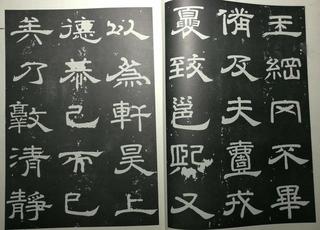 王綱罔不畢
備及夫戎
夏致邕熙又
以為軒昊上
德恭己而已
美乃敦清靜